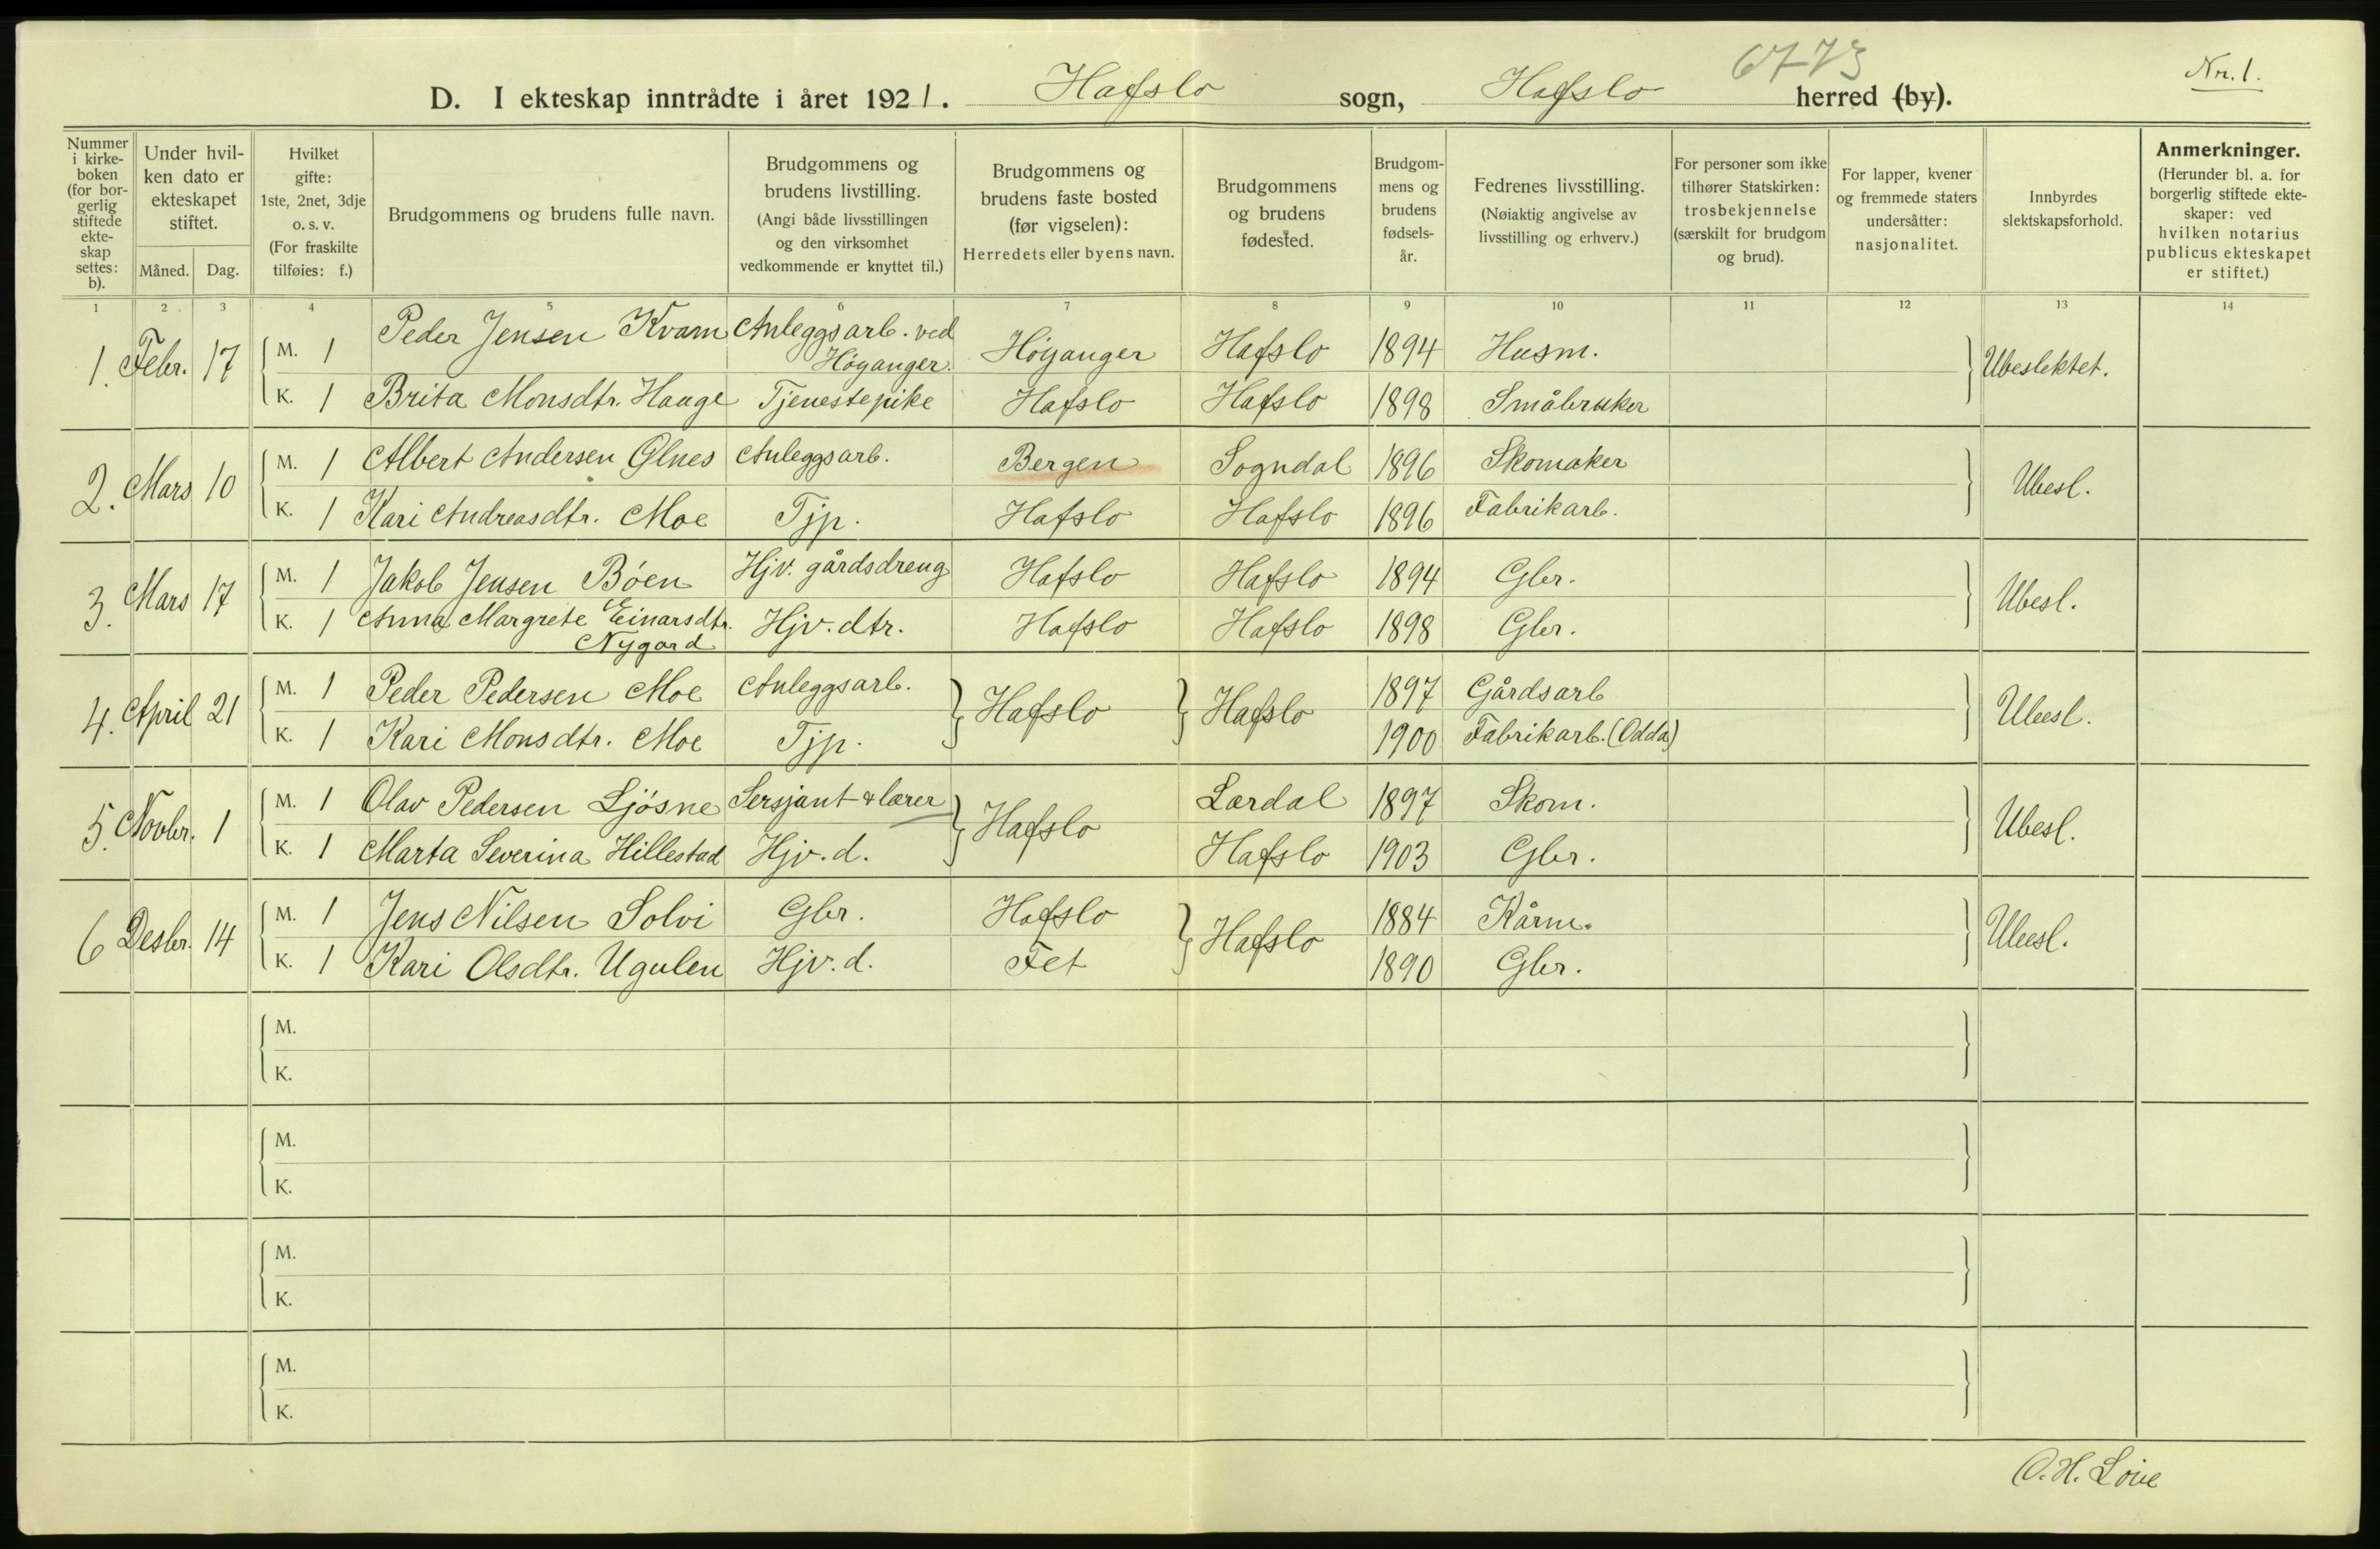 6773
Nr. 1.
D. I ekteskap inntrådte i året 1921. Hafslo sogn, Hafslo herred (by).
Nummer i kirke-boken (for bor-gerlig stiftede ekte-skap settes: b).
Under hvil-ken dato er ekteskapet stiftet.
Måned. Dag.
Hvilket gifte: 1ste, 2net, 3dje o. s. v. (For fraskilte tilføies: f.)
Brudgommens og brudens fulle navn.
Brudgommens og brudens livstilling. (Angi både livsstillingen og den virksomhet vedkommende er knyttet til.)
Brudgommens og brudens faste bosted (før vigselen): Herredets eller byens navn.
Brudgommens og brudens fødested.
Brudgom-mens og brudens fødsels-år.
Fedrenes livsstilling. (Nøiaktig angivelse av livsstilling og erhverv.)
For personer som ikke tilhører Statskirken: trosbekjennelse (særskilt for brudgom og brud).
For lapper, kvener og fremmede staters undersåtter: nasjonalitet.
Innbyrdes slektskapsforhold.
Anmerkninger. (Herunder bl. a. for borgerlig stiftede ekte-skaper: ved hvilken notarius publicus ekteskapet er stiftet.)
1 2 3 4 5 6 7 8 9 10 11 12 13 14
1. Febr. 17 M. 1 Peder Jensen Kvam Anleggsarb. ved Höyanger. Höyanger Hafslo 1894 Husm. Ubeslektet.
K. 1 Brita Monsdtr. Hauge Tjenestepike Hafslo Hafslo 1898 Småbruker
2. Mars 10 M. 1 Albert Andersen Ølnes Anleggsarb. Bergen Sogndal 1896 Skomaker Ubesl.
K. 1 Kari Andreasdtr. Moe Tjp. Hafslo Hafslo 1896 Fabrikarb.
3. Mars 17 M. 1 Jakob Jensen Böen Hjv. gårdsdreng Hafslo Hafslo 1894 Gbr. Ubesl.
K. 1 Anna Margrete Einarsdtr. Nygard Hjv. dtr. Hafslo Hafslo 1898 Gbr.
4. April 21 M. 1 Peder Pedersen Moe Anleggsarb. Hafslo Hafslo 1897 Gårdsarb Ubesl.
K. 1 Kari Monsdtr. Moe Tjp. 1900 Fabrikarb. (Odda)
5. Novbr. 1 M. 1 Olav Pedersen Ljösne Sersjant & lærer Hafslo Lærdal 1897 Skom. Ubesl.
K. 1 Marta Severina Hillestad Hjv. d. Hafslo 1903 Gbr.
6 Desbr. 14 M. 1 Jens Nilsen Solvi Gbr. Hafslo Hafslo 1884 Kårm. Ubesl.
K. 1 Kari Olsdtr. Ugulen Hjv. d. Fet 1890 Gbr.
M.
K.
M.
K.
M.
K.
M.
K.
O. H. Löne